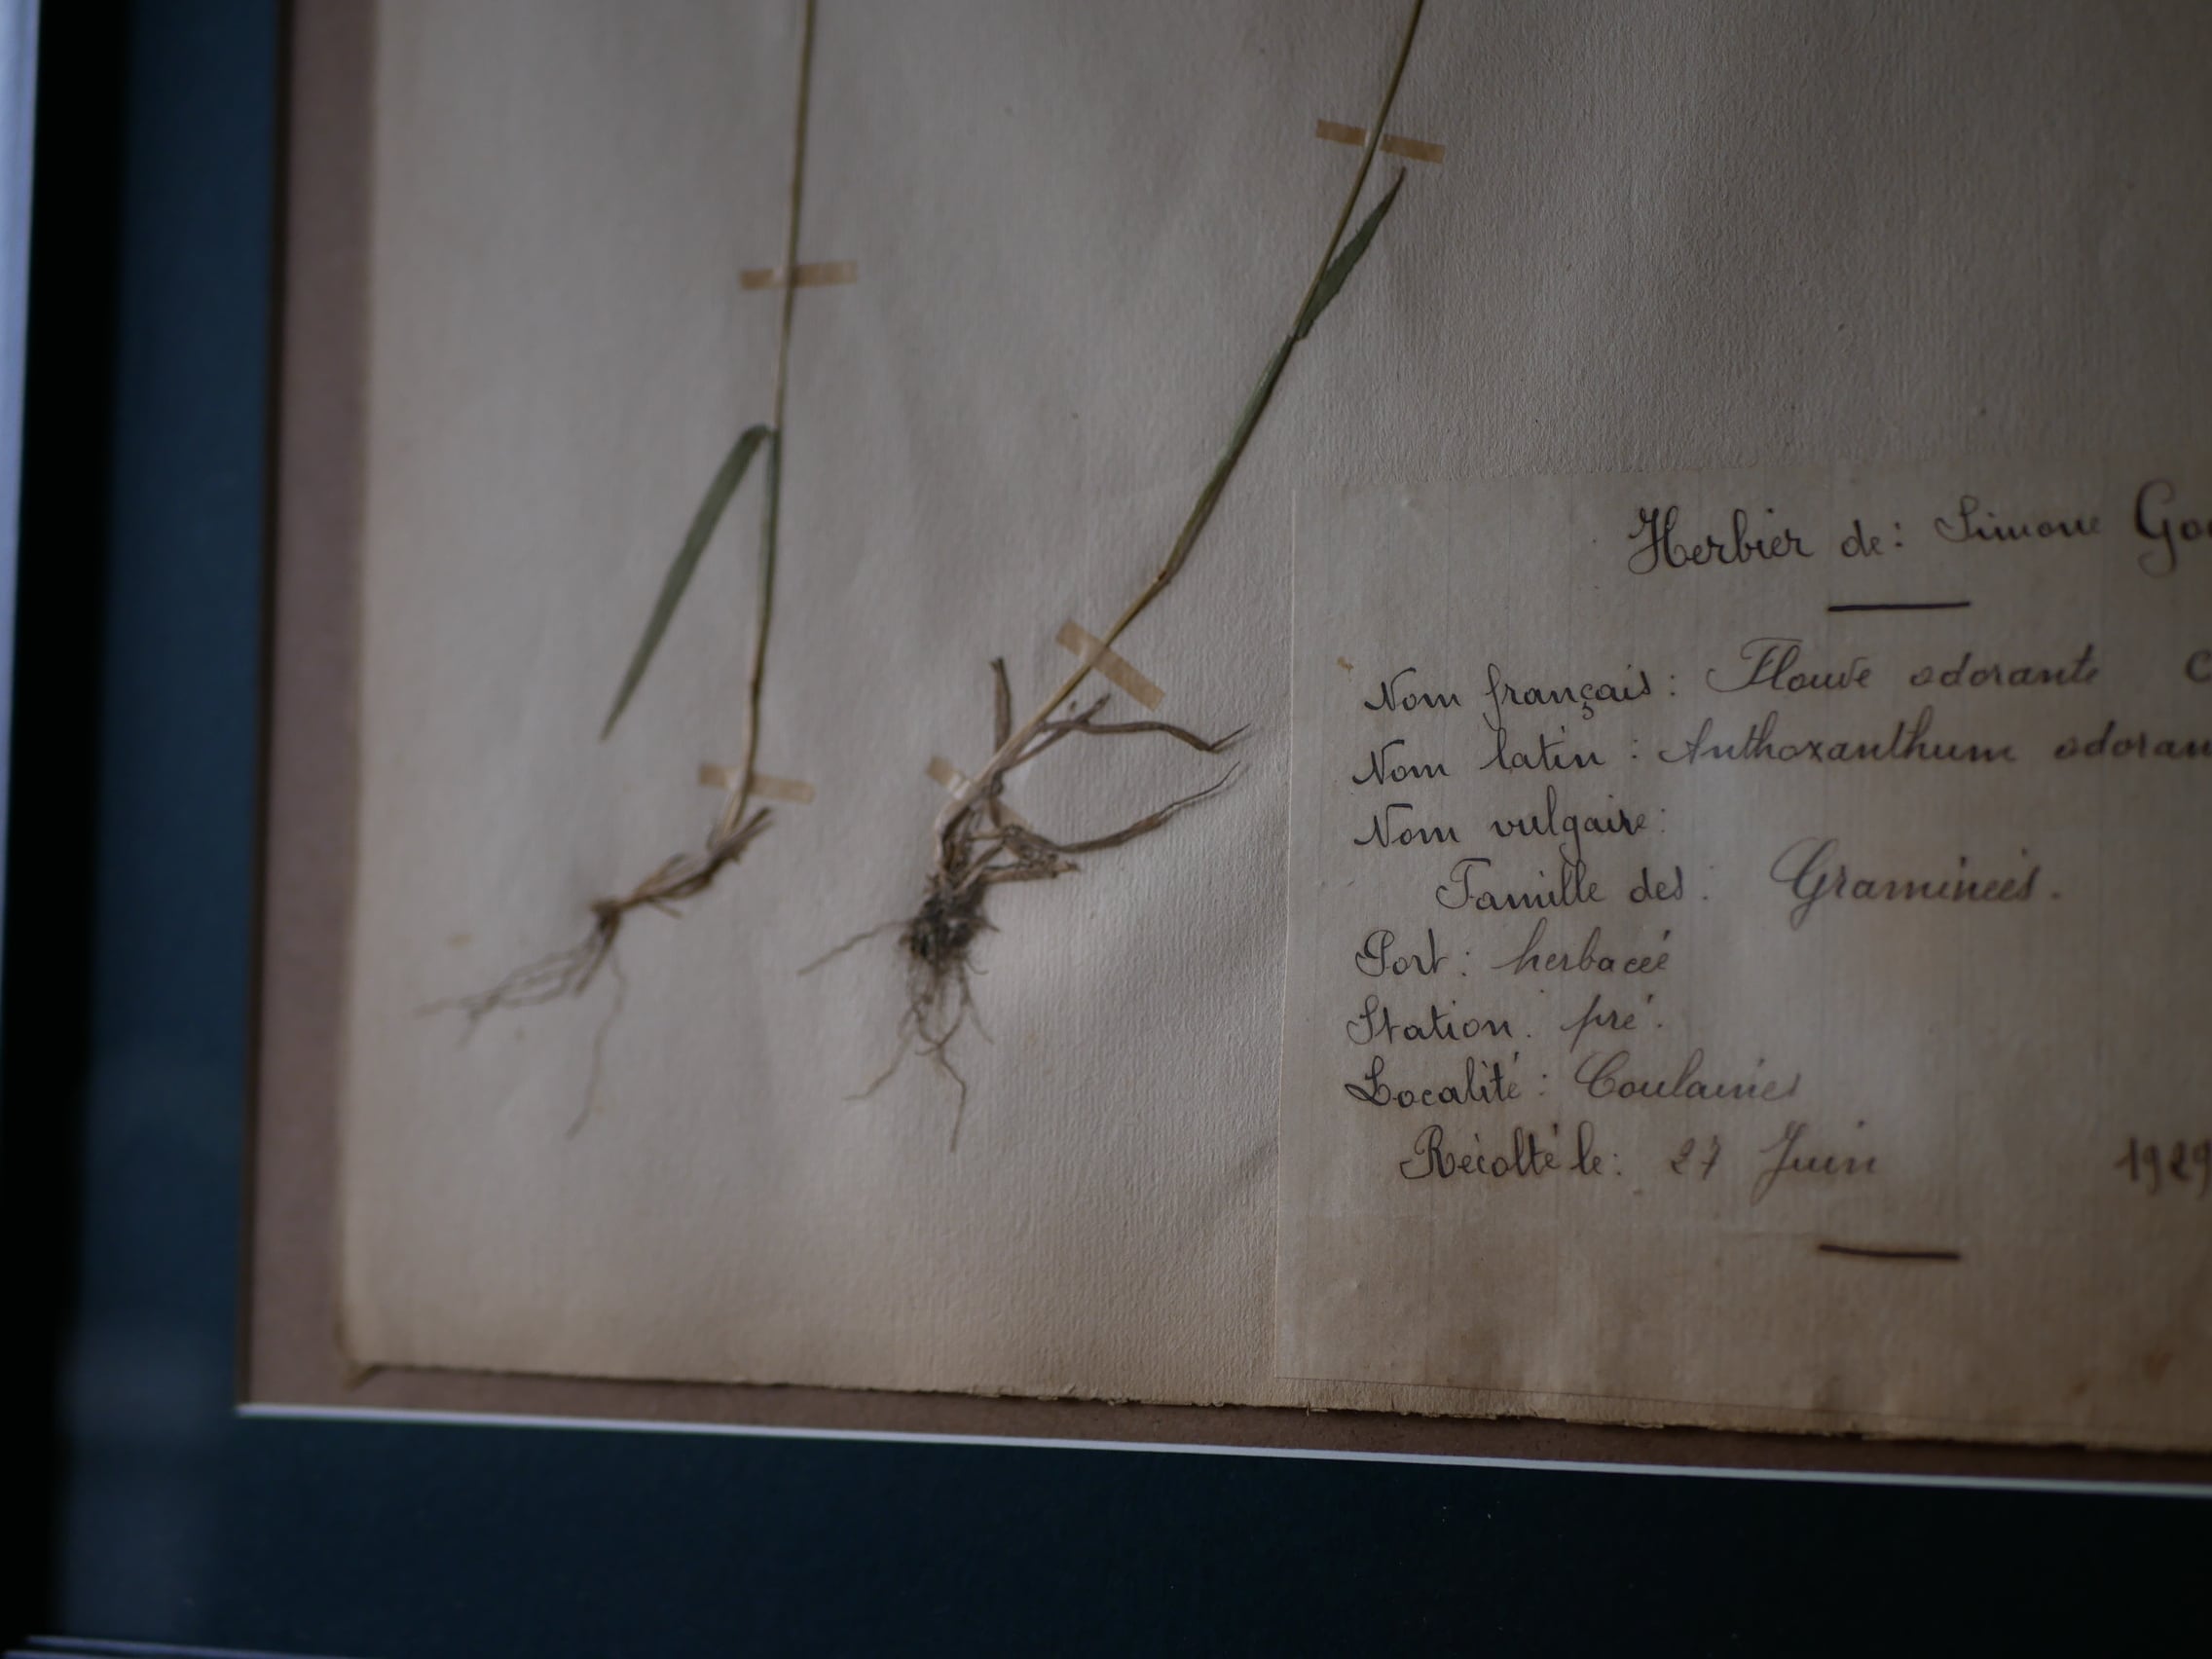 Herbier de: Simone Go
Nom français: Flouve odorante
Nom latin: Anthoxanthum odoran
Nom vulgaire:
Famille des: Graminées.
Port: herbacé
Station. pré.
Localité: Coulaines
Récolté le: 27 Juin 1929